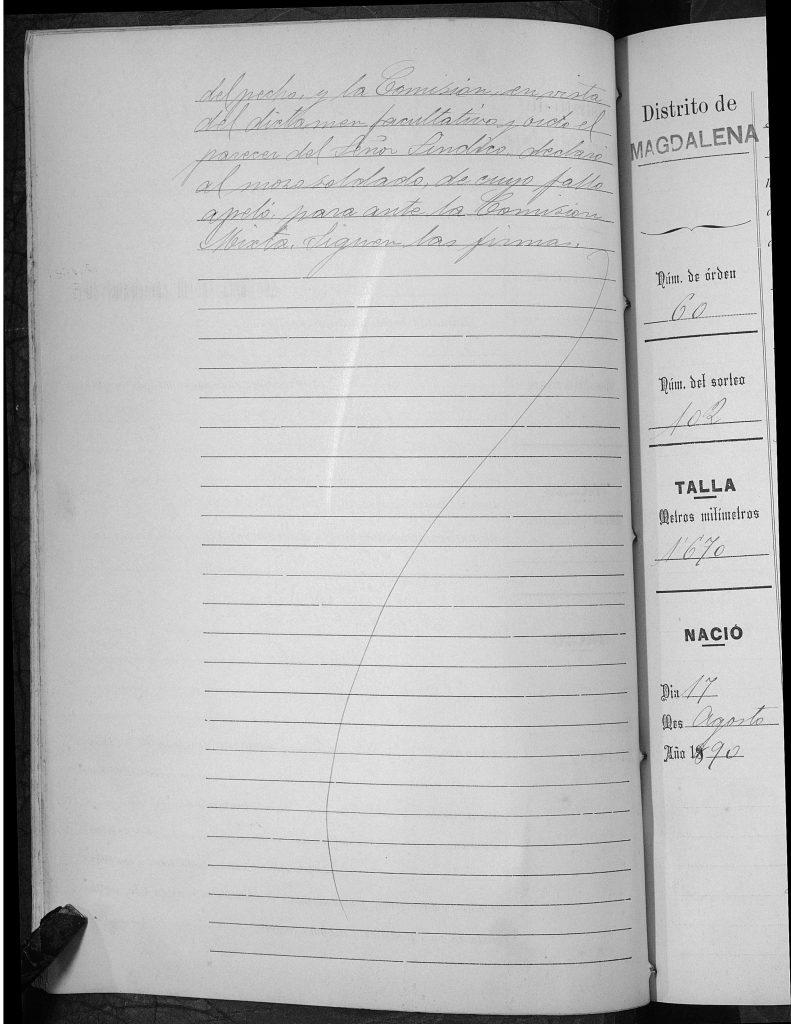 del pecho, y la Comision, en vista
del dictamen facultativo, y oido el
parecer del Señor Sindico, declaró
al mozo soldado, de cuyo fallo
apeló para ante la Comision
Mixta. Siguen las firmas.
Distrito de
MAGDALENA
Núm. de órden
60
Núm. del sorteo
102
TALLA
Metros milímetros
1'670
NACIÓ
Dia 17
Mes Agosto
Año 1890